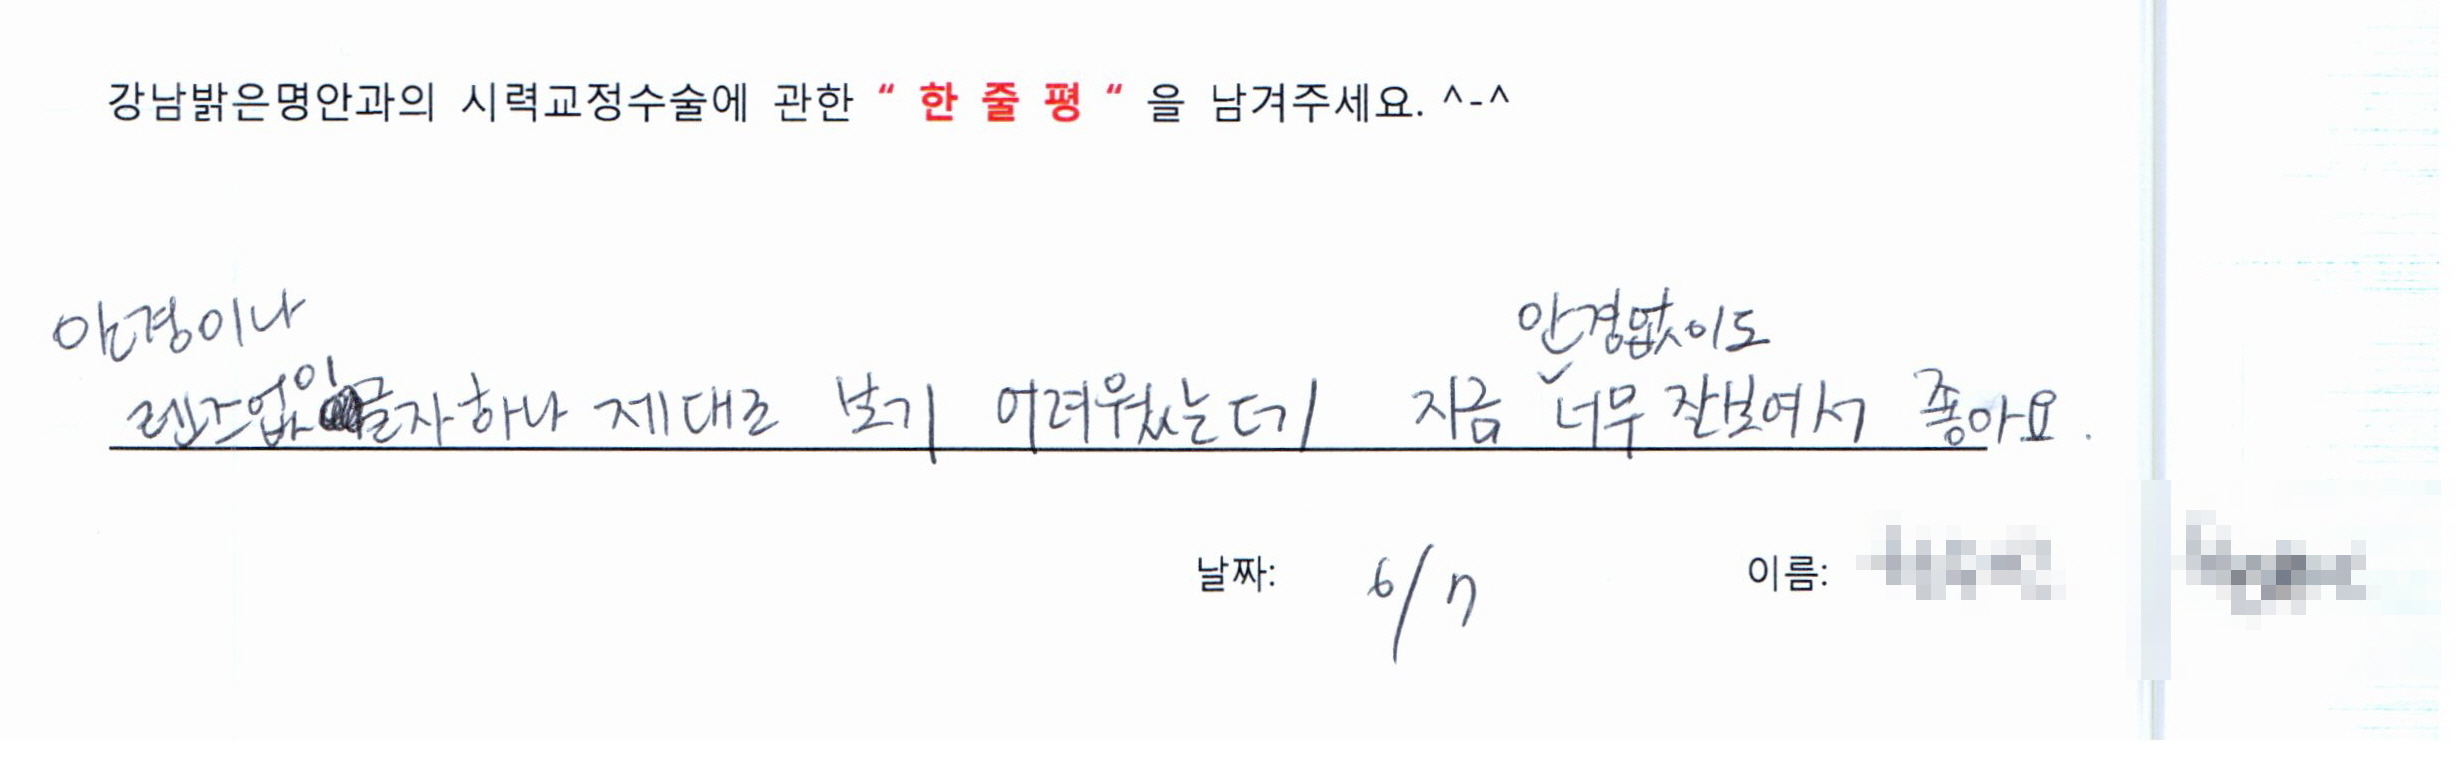 강남밝은명안과의 시력교정수술에 관한 “ 한 줄 평 “ 을 남겨주세요. ^-^
안경이나
안경없이도
렌즈없인 글자하나 제대로 보기 어려웠는데 지금 ✓ 너무 잘보여서 좋아요.
날짜: 6/7 이름: